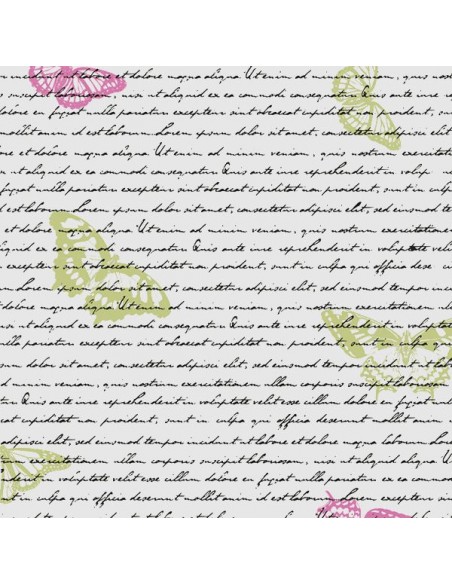 incidunt ut labore et dolore magna aliqua Ut enim ad minim veniam, quis nost
s suscipit laboriosam, nisi ut aliquid ex ea commodi consequatur Quis aute irre re
dolore eu fugiat nulla pariatur excepteur sint obcaecat cupiditat non proident, sun
mollit anim id est laborum Lorem ipsum dolor sit amet, consectetur adipisci elit
re et dolore magna aliqua Ut enim ad minim veniam, quis nostrum exercitatio
n ut aliquid ex ea commodi consequatur Quis aute irre reprehenderit in volup
fugiat nulla pariatur excepteur sint obcaecat cupiditat non proident, sunt in culp
est laborum Lorem ipsum dolor sit amet, consectetur adipisci elit, sed eiusmod te
et dolore magna aliqua Ut enim ad minim veniam, quis nostrum exercitatione
liquid ex ea commodi consequatur Quis aute irure reprehenderit in voluptate vel
r excepteur sint obcaecat cupiditat non proident, sunt in culpa qui officia dese
m Lorem ipsum dolor sit amet, consectetur adipisci elit, sed eiusmod tempor inci
dolore magna aliqua Ut enim ad minim veniam, quis nostrum exercitationem
nisi ut aliquid ex ea commodi consequatur Quis aute irure reprehenderit in voluptat
lla pariatur excepteur sint obcaecat cupiditat non proident, sunt in culpa qui
sum dolor sit amet, consectetur adipisci elit, sed eiusmod tempor incidunt ut
d minim veniam, quis nostrum exercitationem ullam corporis suscipit laborio
r Quis aute irre reprehenderit in voluptate velit esse cillum dolore eu fugiat null
cat cupiditat non proident, sunt in culpa qui officia deserunt mollit anim id e
adipisci elit, sed eiusmod tempor incidunt ut labore et dolore magna aliqua Ut en
exercitationem ullam corporis suscipit laboriosam, nisi ut aliquid aliqua Ut
in voluptate velit esse cillum dolore eu fugiat nulla aliquid ex ea commo
nt in culpa qui officia deserunt mollit anim id est laborum Lorem excepteur sin